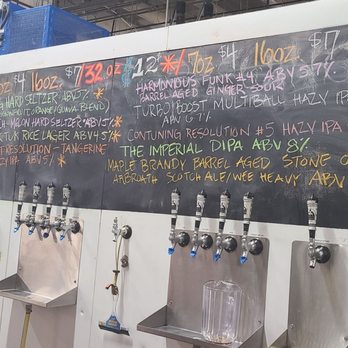 16oz. $7/32oz *12*/7oz $4 16oz. $7
HARD SELTZER ABV 5%
HARMONIOUS FUNK #4 ABV 5.7%
BARREL AGED GINGER SOUR
HARD SELTZER ABV 5%
TURBO BOOST MULTIBALL HAZY IPA
ABV 6.7%
RICE LAGER ABV 4.5%
RESOLUTION - TANGERINE
CONTUNING RESOLUTION #5 HAZY IPA
IPA ABV 5%
THE IMPERIAL DIPA ABV 8%
MAPLE BRANDY BARREL AGED STONE OF
ARBROATH SCOTCH ALE/WEE HEAVY ABV